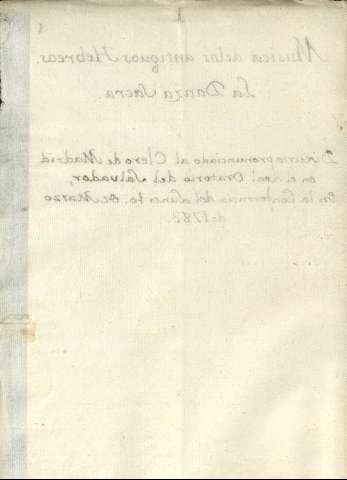 1
Musica de los antiguos Hebreos.
La Danza Sacra
Discurso pronunciado al Clero de Madrid
en el Oratorio del Salvador,
en la Conferencia del de Marzo
de 1782.